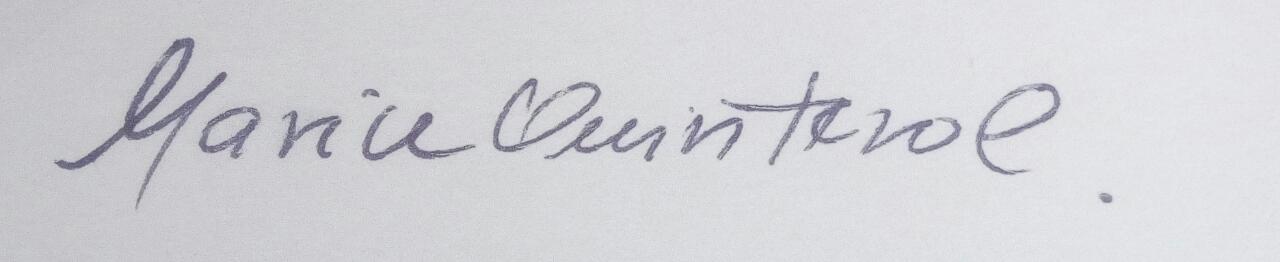 Maria Quintero L.